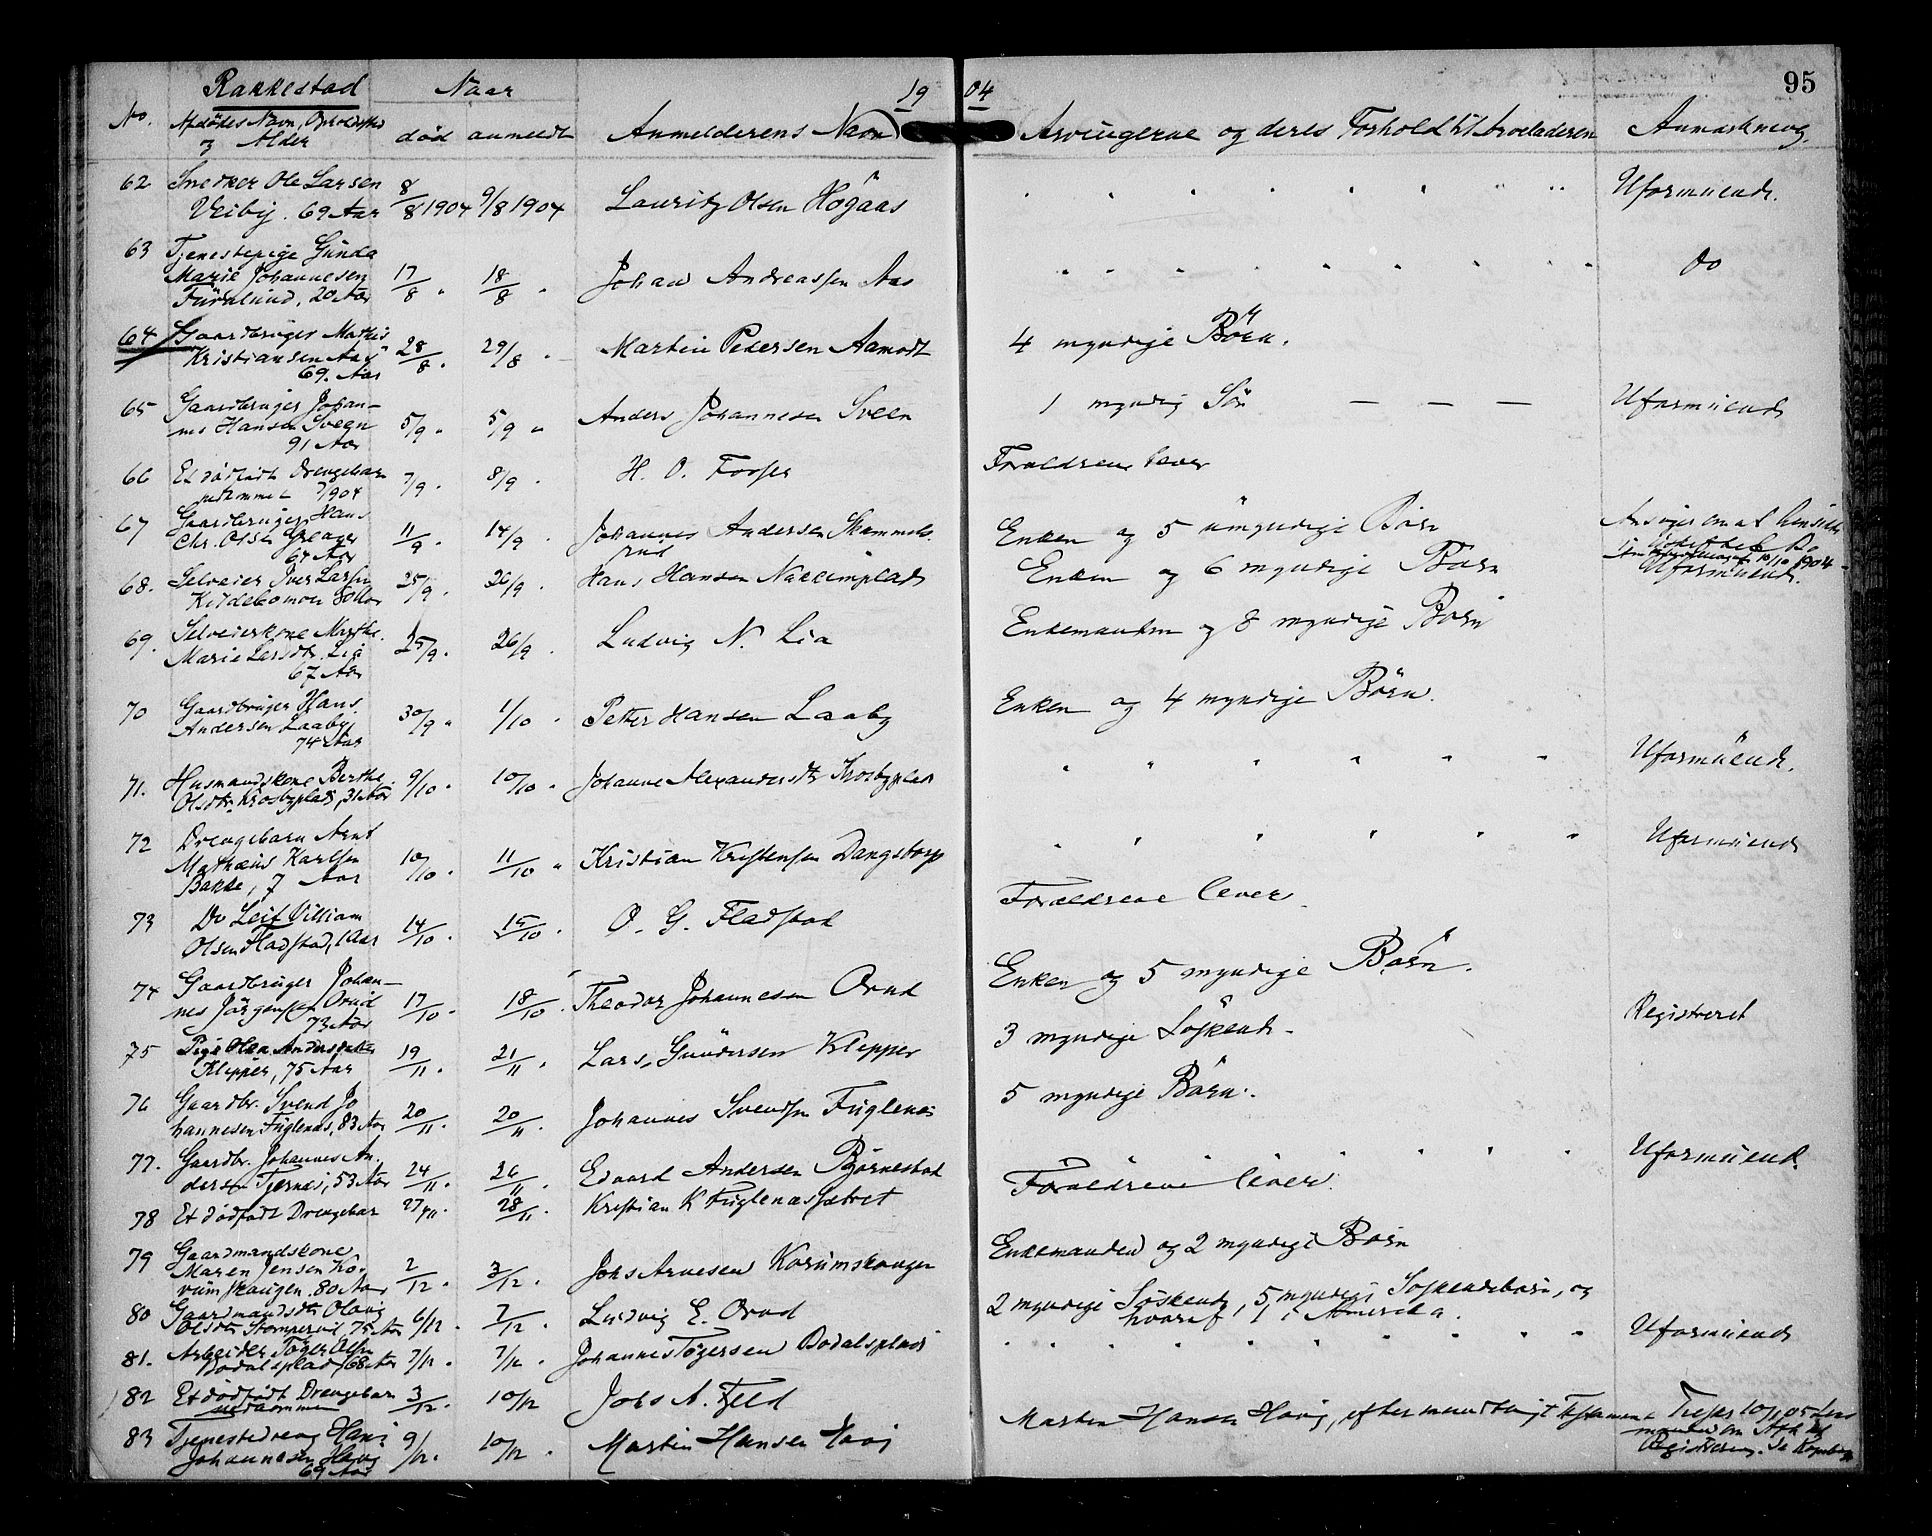 Rakkestad Naar 19 04 95
No. Afdødes Navn, Opholdssted og Alder død anmeldt Anmelderens Navn Arvingerne og deres Forhold til Arveladeren Anmærkning.
62 Snedker Ole Larsen 8/8 1904 9/8 1904 Lauritz Olsen Högaas " " " " " " " " Uformüende.
Veiby. 69 Aar
63 Tjenestepige Gunda
Marie Johannesen 17/8 " 18/8 " Johan Andreassen Aas " " " " " " " " Do
Furulund, 20 Aar
64 Gaardbruger Mathis
Kristiansen Aas 28/8 " 29/8 " Martin Pedersen Aamodt 4 myndige Börn.
69. Aar
65 Gaardbruger Johan-
nes Hansen Sveen 5/9 " 5/9 " Anders Johannesen Sveen 1 myndig Sön — — — Uformüende
91 Aar
66 Et dödfödt Drengebarn 7/9 " 8/9 " H. O. Fosser Forældrene lever
udkommet 7/904
67 Gaardbruger Hans
Chr. Olsen Grenager 11/9 " 14/9 " Johannes Andersen Skammels- Enken og 5 umyndige Börn
64 Aar rud
68. Selveier Iver Larsen 25/9 " 26/9 " Hans Hansen Nakkimplads Enken og 6 myndige Börn Uformüende.
80 Aar
69. Selveierkone Marthe
Marie Larsdtr. Lia 25/9 " 26/9 " Ludvig N. Lia Enkemanden og 8 myndige Börn
67 Aar
70 Gaardbruger Hans
Andersen Laaby 30/9 " 1/10 " Petter Hansen Laaby Enken og 4 myndige Börn.
74 Aar
71. Husmandskone Berthe 9/10 " 10/10 " Johanne Alexandersdtr Krosbyplads " " " " " " Uformüende.
Olsdtr. Krosbyplads, 31 Aar
72 Drengebarn Arnt
Mathæus Karlsen 10/10 " 11/10 " Kristian Kristensen Dangstorp " " " " " " Uformüende
Bakke, 7 Aar
73 Do Leif Villiam 14/10 " 15/10 " O. G. Fladstad Forældrene lever
Olsen Fladstad, 1 Aar
74 Gaardbruger Johan-
nes Jörgensen Orud 17/10 " 18/10 " Theodor Johannesen Orud Enken og 5 myndige Börn.
73 Aar
75 Pige Olea Andersdatter 19/11 " 21/11 " Lars Gundersen Klepper 3 myndige Söskende - Registreret
Klepper, 75 Aar
76 Gaardbr. Svend Jo 20/11 " 20/11 " Johannes Svendsen Fuglenæs 5 myndige Börn.
hannesen Fuglenæs, 83 Aar
77. Gaardbr. Johannes An. 24/11 " 26/11 " Edvard Andersen Björnestad " " " " " " Uformüende.
dersen Tjernes, 53 Aar
78 Et dödfödt Drengebar 27/11 " 28/11 " Kristian K Fuglenæssætret Forældrene lever.
79 Gaardmandskone
Maren Jensen Ko- 2/12 " 3/12 " Johs Arnesen Korumskaugen Enkemanden og 2 myndige Börn
rumskaugen, 80 Aar
80 Gaardmandsdtr Olava 6/12 " 7/12 " Ludvig E. Orud 2 myndige Söskende, 5 myndige Söskendebörn, og
Olsdtr. 75 Aar hvoraf 1 i Amerika.
81. Arbeider Töger Olsen 7/12 " 7/12 " Johannes Tögersen Bodalsplads " " " " " " " " Uformüende
Bodalsplads, 68 Aar
82 Et dödfödt Drengebarn 3/12 " 10/12 Johs A. Fjeld
83 Tjenestedreng Hans 9/12 " 10/12 " Martin Hansen Haug Martin Hansen Haug, efter mundtligt Testament
Johannesen Haug
69 Aar